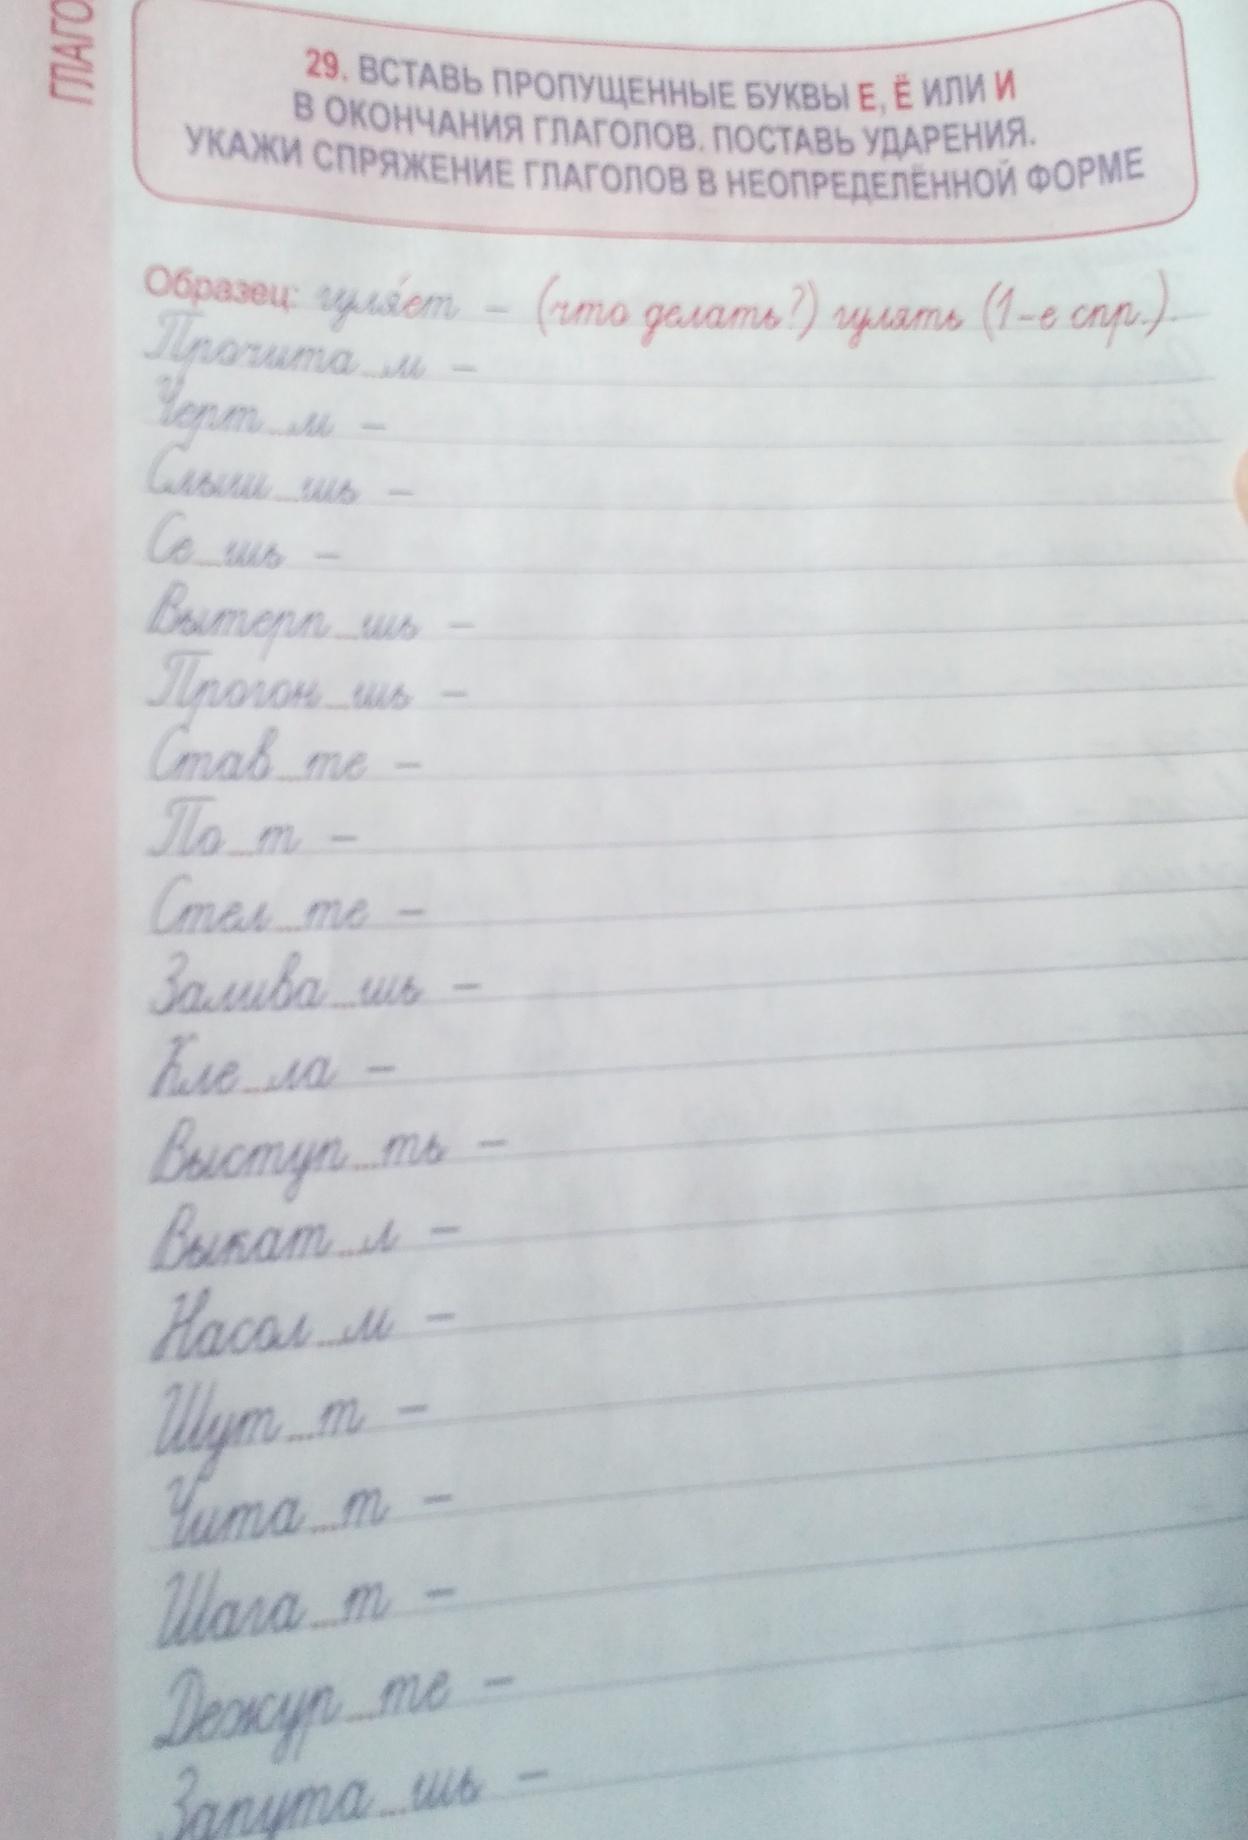 ГЛАГО
29. ВСТАВЬ ПРОПУЩЕННЫЕ БУКВЫ Е, Ё ИЛИ И
В ОКОНЧАНИЯ ГЛАГОЛОВ. ПОСТАВЬ УДАРЕНИЯ.
УКАЖИ СПРЯЖЕНИЕ ГЛАГОЛОВ В НЕОПРЕДЕЛЁННОЙ ФОРМЕ
Образец: гуля́ет – (что делать?) гулять (1-е спр.)
Прочита...м –
Черт...м –
Слыш...шь –
Се...шь –
Вытерп...шь –
Прогон...шь –
Став...те –
По...т –
Стел...те –
Залива...шь –
Кле...ла –
Выступ...ть –
Выкат...л –
Насол...м –
Шут...т –
Чита...т –
Шага...т –
Дежур...те –
Запута...шь –